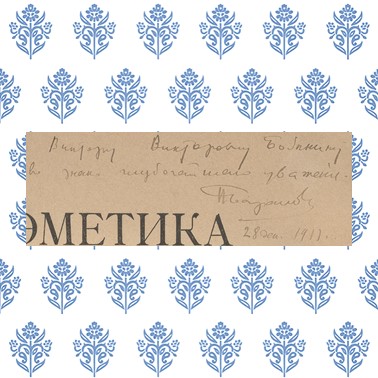 Виктору Викторовичу Бобынину
в знак глубочайшаго уважен.
ѲМЕТИКА
28 1911.